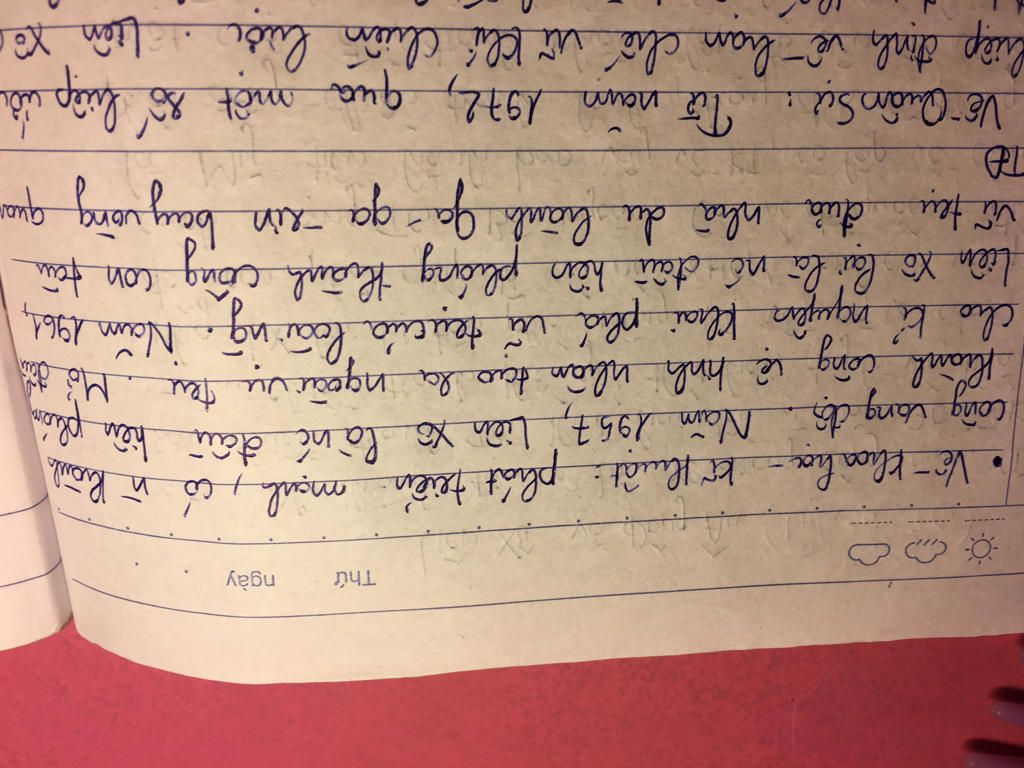 Thứ ngày
• Về khoa học - kĩ thuật: phát triển mạnh, có n thành
công vang dội. Năm 1957, Liên Xô là nc đầu tiên phóng
thành công vệ tinh nhân tạo ra ngoài vụ trụ. Mở đầu
cho kỉ nguyên khai phá vũ trụ của loài ng. Năm 1961,
Liên Xô lại là nc đầu tiên phóng thành công con tàu
vũ trụ đưa nhà du hành Ga-ga-rin bay vòng quanh
TĐ
Về Quân Sự: Từ năm 1972, qua một số hiệp ước
hiệp định về hạn chế vũ khí chiến lược. Liên Xô